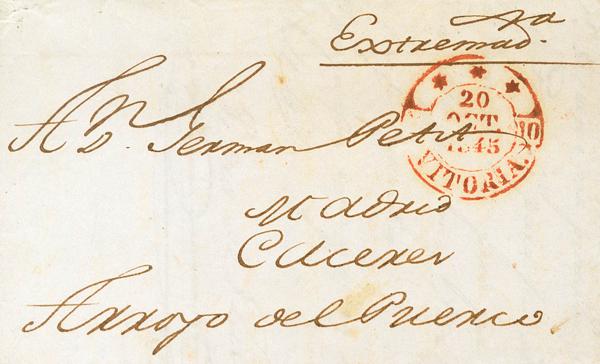 Extremad.ra
20
OCT
1845
VITORIA.
A D.n German Petit
Madrid
Caceres
Arroyo del Puerco